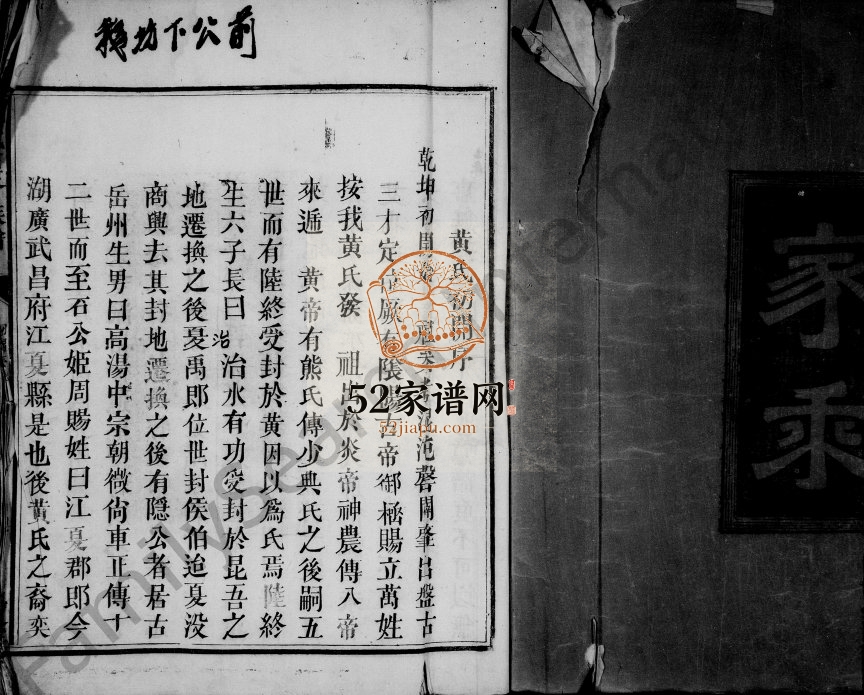 家乘
前公下坊
黃氏初開序
乾坤初開 氾范磬闢肇昌盤古
三才定位厥有陰陽古帝御極賜立萬姓
按我黃氏發 祖出於炎帝神農傳八帝
來遞 黃帝有熊氏傳少典氏之後嗣五
世而有陸終受封於黃因以爲氏焉陸終
生六子長曰 治 治水有功受封於昆吾之
地遷換之後夏禹即位世封侯伯迨夏没
商興去其封地遷換之後有隱公者居古
岳州生男曰高湯中宗朝徵尙車正傳十
二世而至石公姬周賜姓曰江夏郡郎今
湖廣武昌府江夏縣是也後黃氏之裔奕
52家谱网
52jiapu.com
FamilySearch International